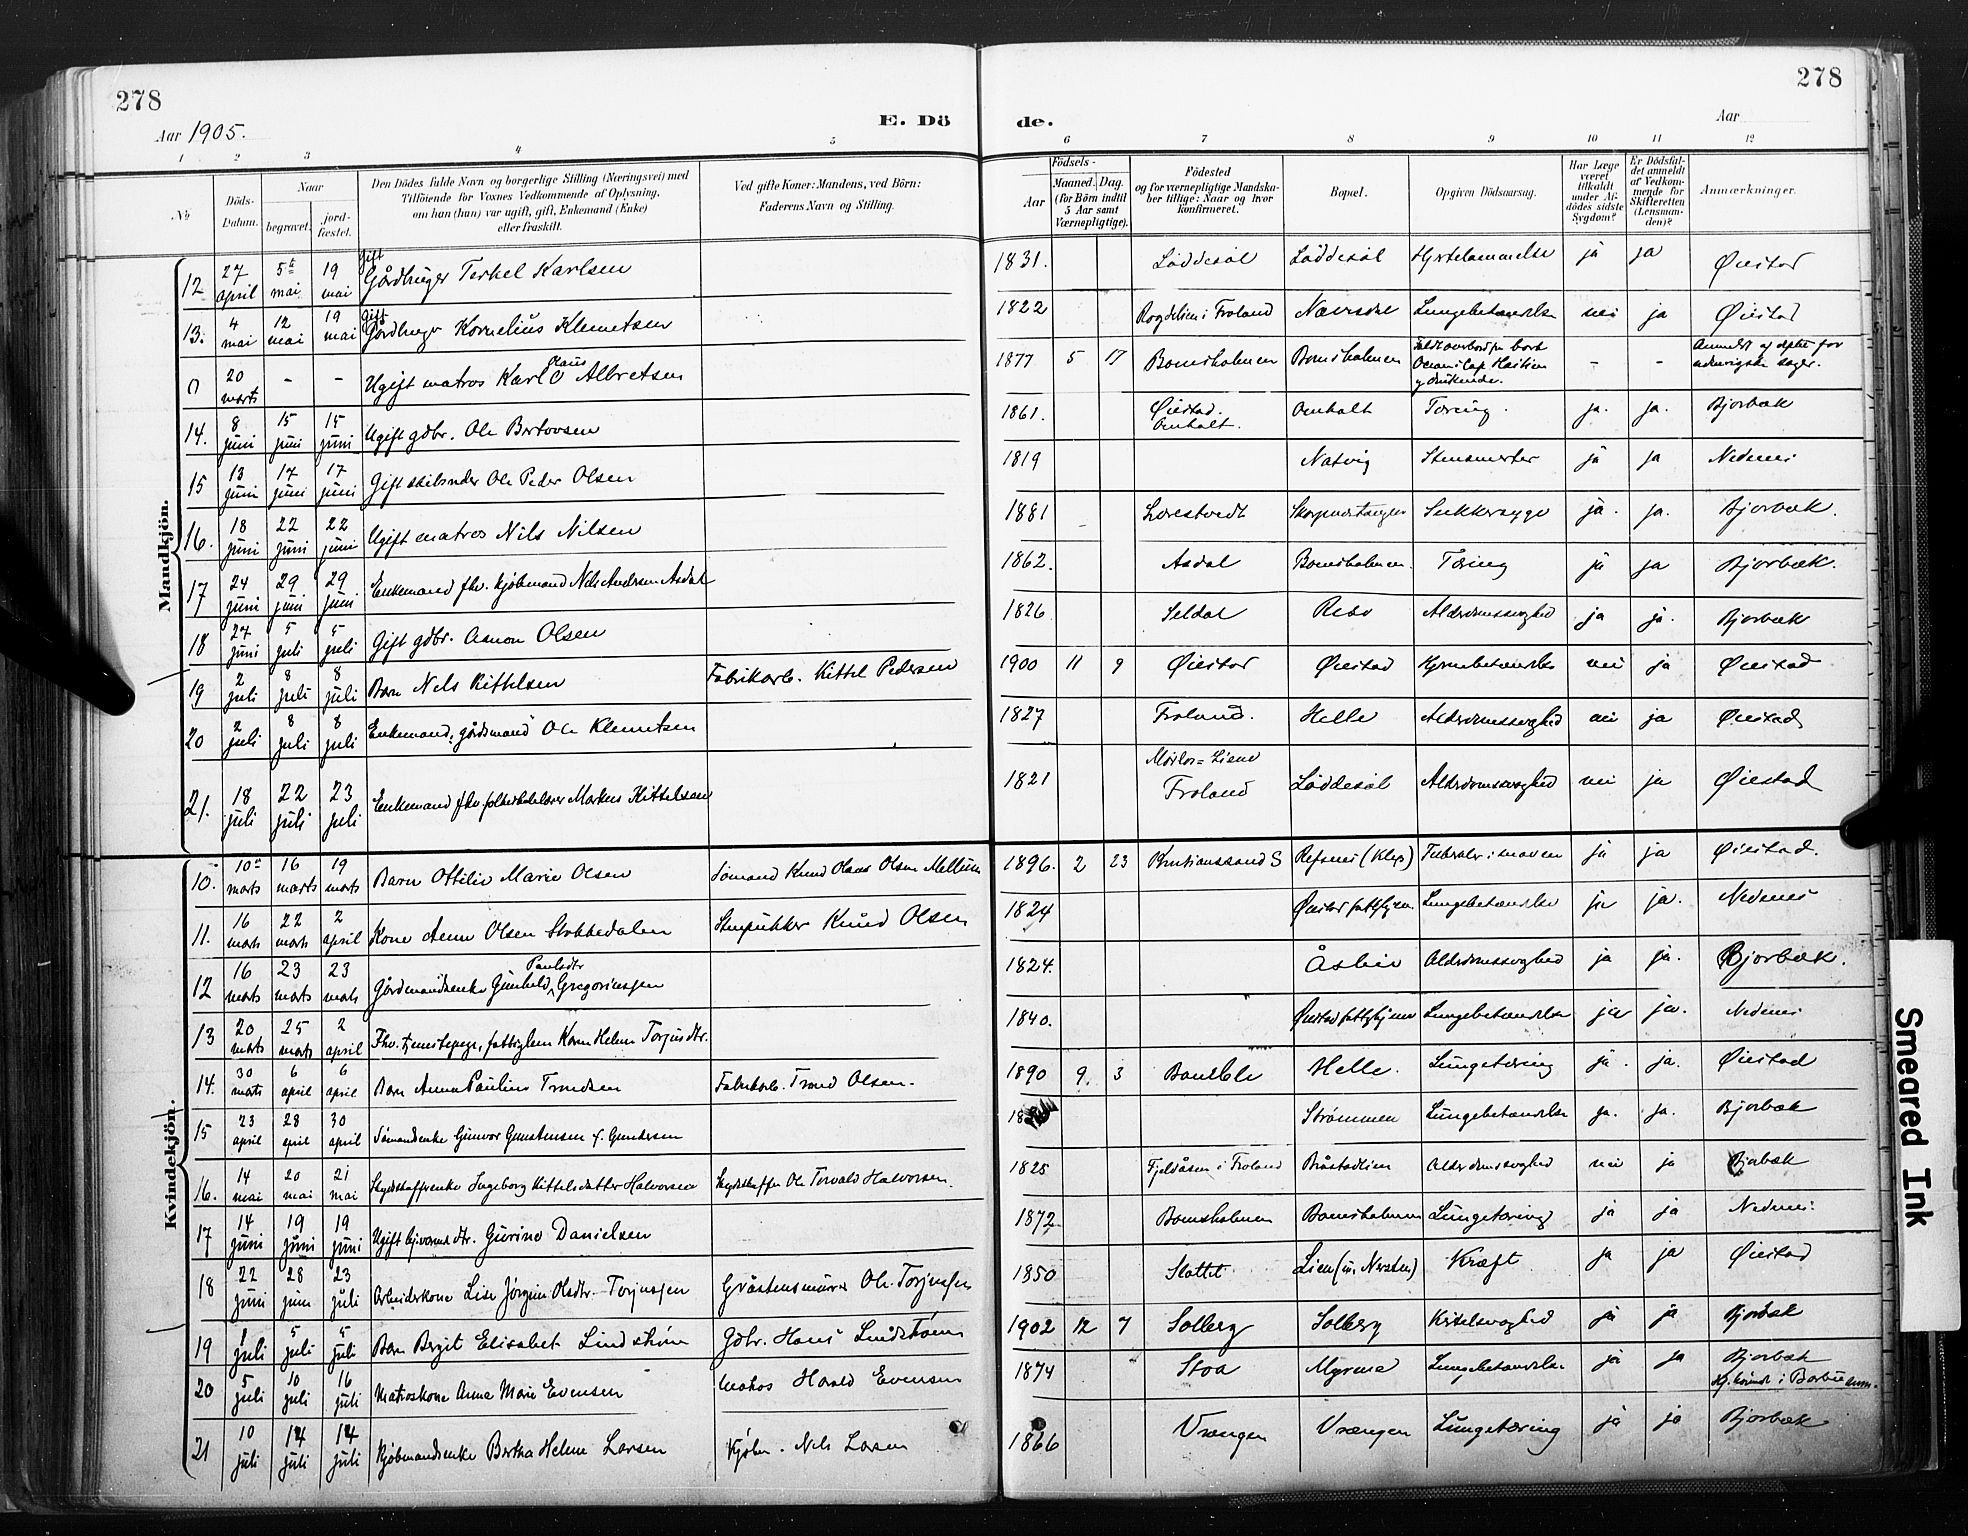 278
278
Aar 1905.
E. Dö
de.
Aar
1 2 3 4 5
6 7 8 9 10 11 12
No
Döds-Datum.
Naar
begravet.
jord-fæstet.
Den Dödes fulde Navn og borgerlige Stilling (Næringsvei) med
Tilföiende for Voxnes Vedkommende af Oplysning,
om han (hun) var ugift, gift, Enkemand (Enke)
eller fraskilt.
Ved gifte Koner: Mandens, ved Börn:
Faderens Navn og Stilling.
Födsels-
Aar
Maaned. Dag.
(for Börn indtil
5 Aar samt
Værnepligtige).
Födested
og for værnepligtige Mandska-
ber tillige: Naar og hvor
konfirmeret.
Bopæl.
Opgiven Dödsaarsag.
Har Læge
været
tilkaldt
under Af-
dödes sidste
Sygdom?
Er Dödsfal-
det anmeldt
af Vedkom-
mende for
Skifteretten
(Lensman-
den)?
Anmærkninger.
Mandkjön.
12 27 april 5te mai 19 mai Gift Gårdbruger Terkel Karlsen 1831. Løddesøl Løddesøl Hjertelammelse ja ja Øiestad
13. 4 mai 12 mai 19 mai Gift Gårdbruger Kornelius Klemetsen 1822 i Froland Lungebetændelse nei ja Øiestad
0 20 marts - - Ugift matros Karl Olaus Albretsen 1877 5 17 Bomsholmen Bomsholmen - -
14. 8 juni 15 juni 15 juni Ugift gdbr. Ole Bertovsen 1861. Øiestad. Omholt. Omholt Tæring. ja. ja. Bjorbæk
15 13 juni 17 juni 17 juni Gift Ole Peder Olsen 1819 Natvig ja ja Nedenes
16. 18 juni 22 juni 22 juni Ugift matros Nils Nilsen 1881 Lørestvedt Sukkersyge ja. ja. Bjorbæk.
17 24 juni 29 juni 29 juni Enkemand fhv. kjøbmand Nils Andersen Asdal 1862. Asdal Bomsholmen. Tæring ja ja Bjorbæk.
18 24 juni 5 juli 5 juli Gift gdbr. Asmon Olsen 1826 Seldal Alderdomssvaghed ja ja. Bjorbæk
19 2 juli 8 juli 8 juli Barn Nels Kittelsen Fabrikarb. Kittel Pedersen 1900 11 9 Øiestad Øiestad Hjernebetændelse nei ja Øiestad
20 2 juli 8 juli 8 juli Enkemand, gårdmand Ole Klemetsen 1827 Froland. Helle Alderdomssvaghed nei ja Øiestad
21. 18 juli 22 juli 23 juli Enkemand fhv. Markus Kittelsen 1821 Froland Løddesøl Alderdomssvaghed nei ja Øiestad
Kvindekjön.
10. 10de marts 16 marts 19 marts Barn Ottilie Marie Olsen Sømand Knud Olaus Olsen 1896. 2 23 Kristianssand S Refsnes (Klep) Tuberkler i maven ja ja Øiestad.
11. 16 marts 22 marts 2 april Kone Anne Olsen Stokkedalen Stenpukker Knud Olsen 1824 Øiestad Lungebetændelse ja ja. Nedenes
12 16 marts 23 marts 23 marts Gårdmandsenke Gunhild Paulsdtr Gregoriussen 1824. Åslien Alderdomssvaghed ja ja. Bjorbæk.
13 20 marts 25 marts 2 april Fhv. tjenestepige, fattiglem Karen Helene Torjusdtr. 1840. Øiestad Lungebetændelse ja ja. Nedenes
14. 30 marts 6 april 6 april Barn Anna Pauline Trondsen Fabrikarb. Trond Olsen. 1890 9. 3 Bamble Helle. Lungetæring ja. ja. Øiestad
15 23 april 28 april 30 april Sømandsenke Gunvor Gunstensen f. Gundersen Strømmen Lungebetændelse ja. ja. Bjorbæk
16. 14 mai 20 mai 21 mai Skydsskafferenke Ingeborg Kittelsdatter Halvorsen Skydsskaffer Ole Tervald Halvorsen. 1825 Fjeldåsen i Froland Bråstadlien Alderdomssvaghed nei ja Bjorbæk
17 14 juni 19 juni 19 juni Ugift Gurine Danielsen 1872 Bomsholmen Bomsholmen Lungetæring ja ja Nedenes
18 22 juni 28 juni 23 juli Arbeiderkone Lise Jørgine Olsdtr. Torjussen Gråstensmurer Ole Torjussen 1850 Slottet Lien (u. Nersten) Kræft ja ja Øiestad
19 1 juli 5 juli 5 juli Barn Bergit Elisabet Lindstrøm Gdbr. Hans Lindstrøm 1902 12 7 Solberg Solberg Kirtelsvaghed ja ja Bjorbæk
20 5 juli 10 juli 16 juli Matroskone Anna Marie Evensen Matros Harald Evensen 1874 Stoa Myrene Lungebetændelse ja ja Bjorbæk
21 10 juli 14 juli 14 juli Kjøbmandsenke Bertha Helene Larsen Kjøbm. Nils Larsen 1866 Vrængen Vrængen Lungetæring ja ja Bjorbæk
Smeared Ink